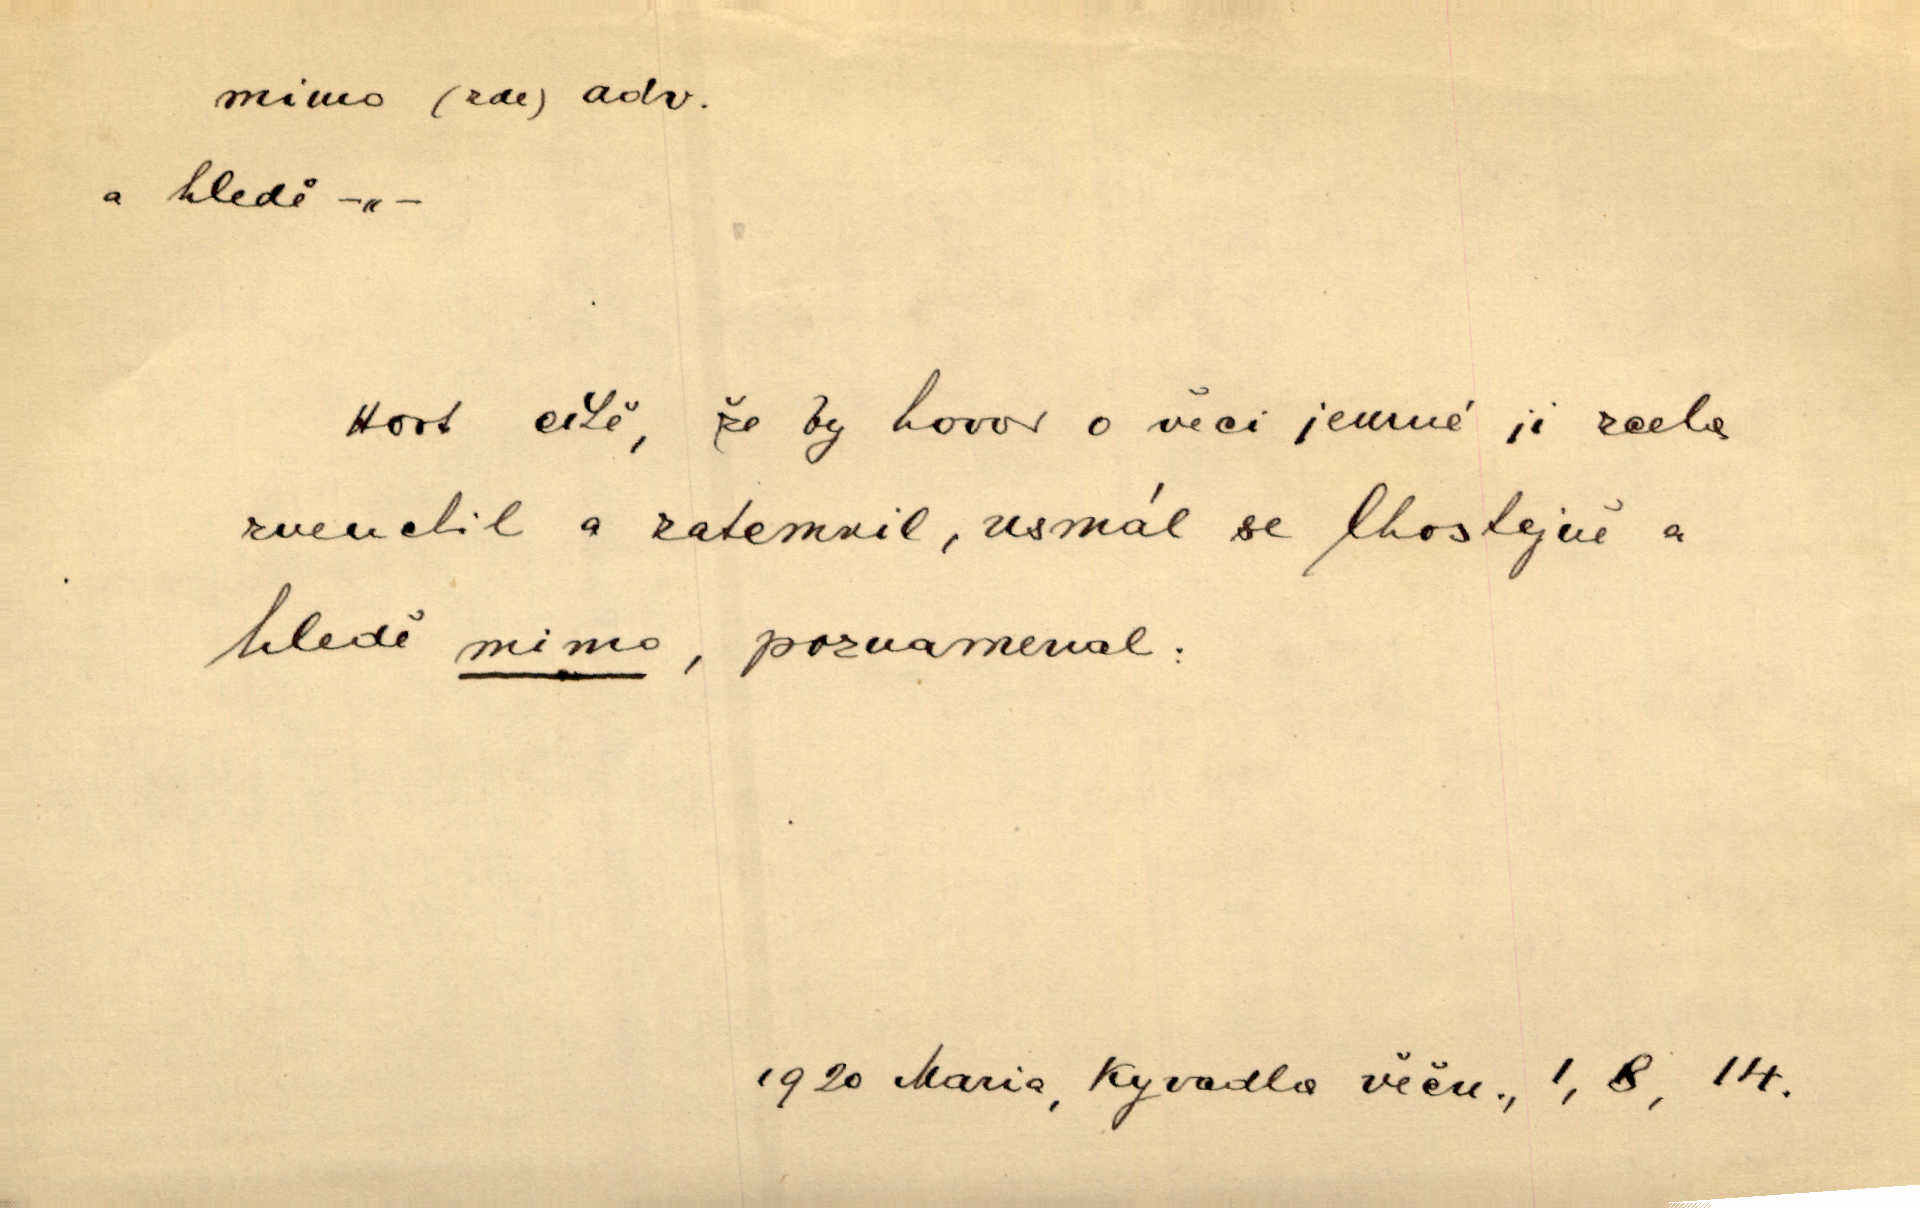 mimo (zde) adv.
a hledě -„-
Hort cítě, že by hovor o věci jemné ji zcela
zvenčil a zatemnil, usmál se lhostejně a
hledě mimo, poznamenal:
1920 Maria, Kyvadla věčn., 1, 8, 14.